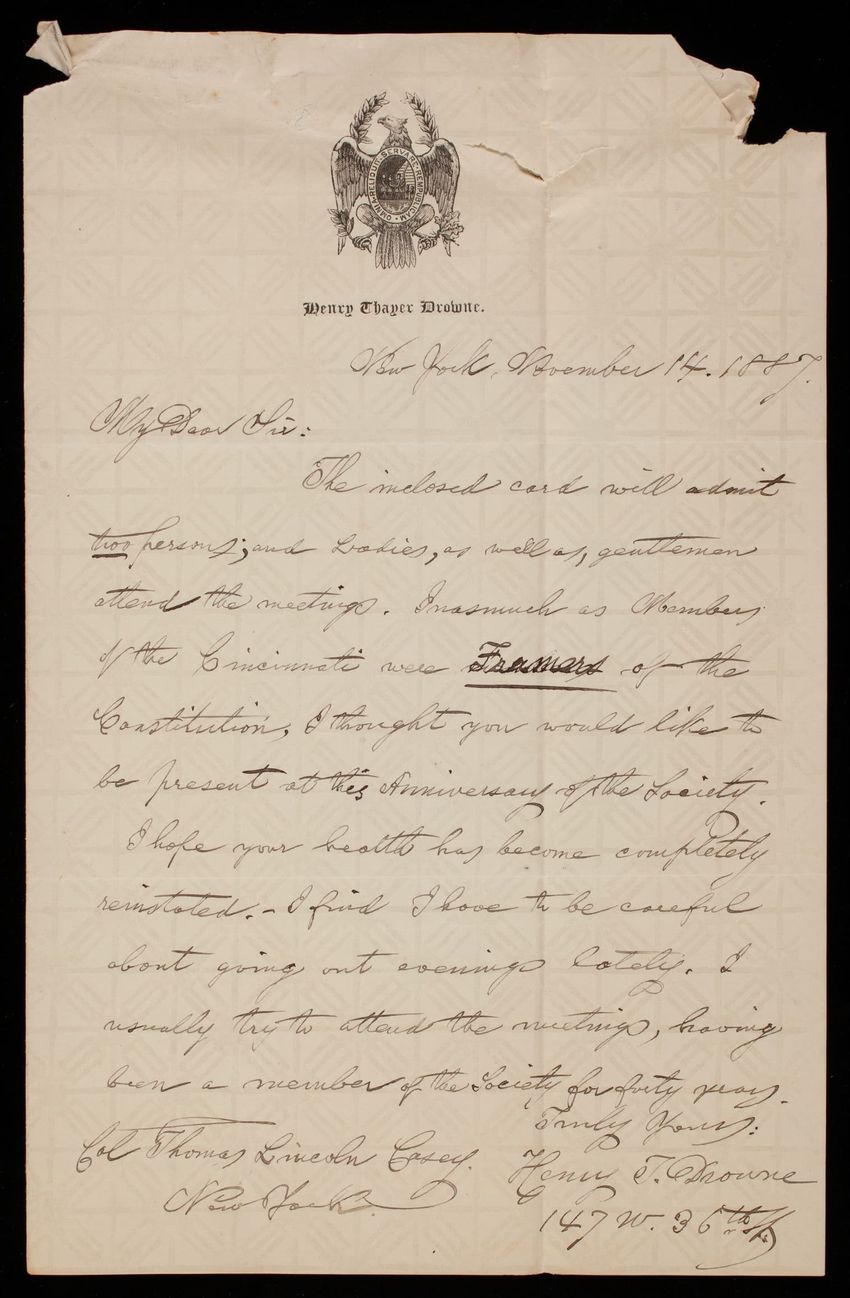 OMNIA RELIQUIT SERVARE REMPUBLICAM
Henry Thayer Drowne.
New York, November 14. 1887.
My Dear Sir:
The inclosed card will admit
two persons; and Ladies, as well as, gentlemen
attend the meetings. Inasmuch as Members
of the Cincinnati were Framers of the
Constitution, I thought you would like to
be present at this Anniversary of the Society.
I hope your health has become completely
reinstated. - I find I have to be careful
about going out evenings lately. I
usually try to attend the meetings, having
been a member of the Society for forty years.
Truly Yours:
Col Thomas Lincoln Casey.
Henry T. Drowne
New York.
147 W. 36th St